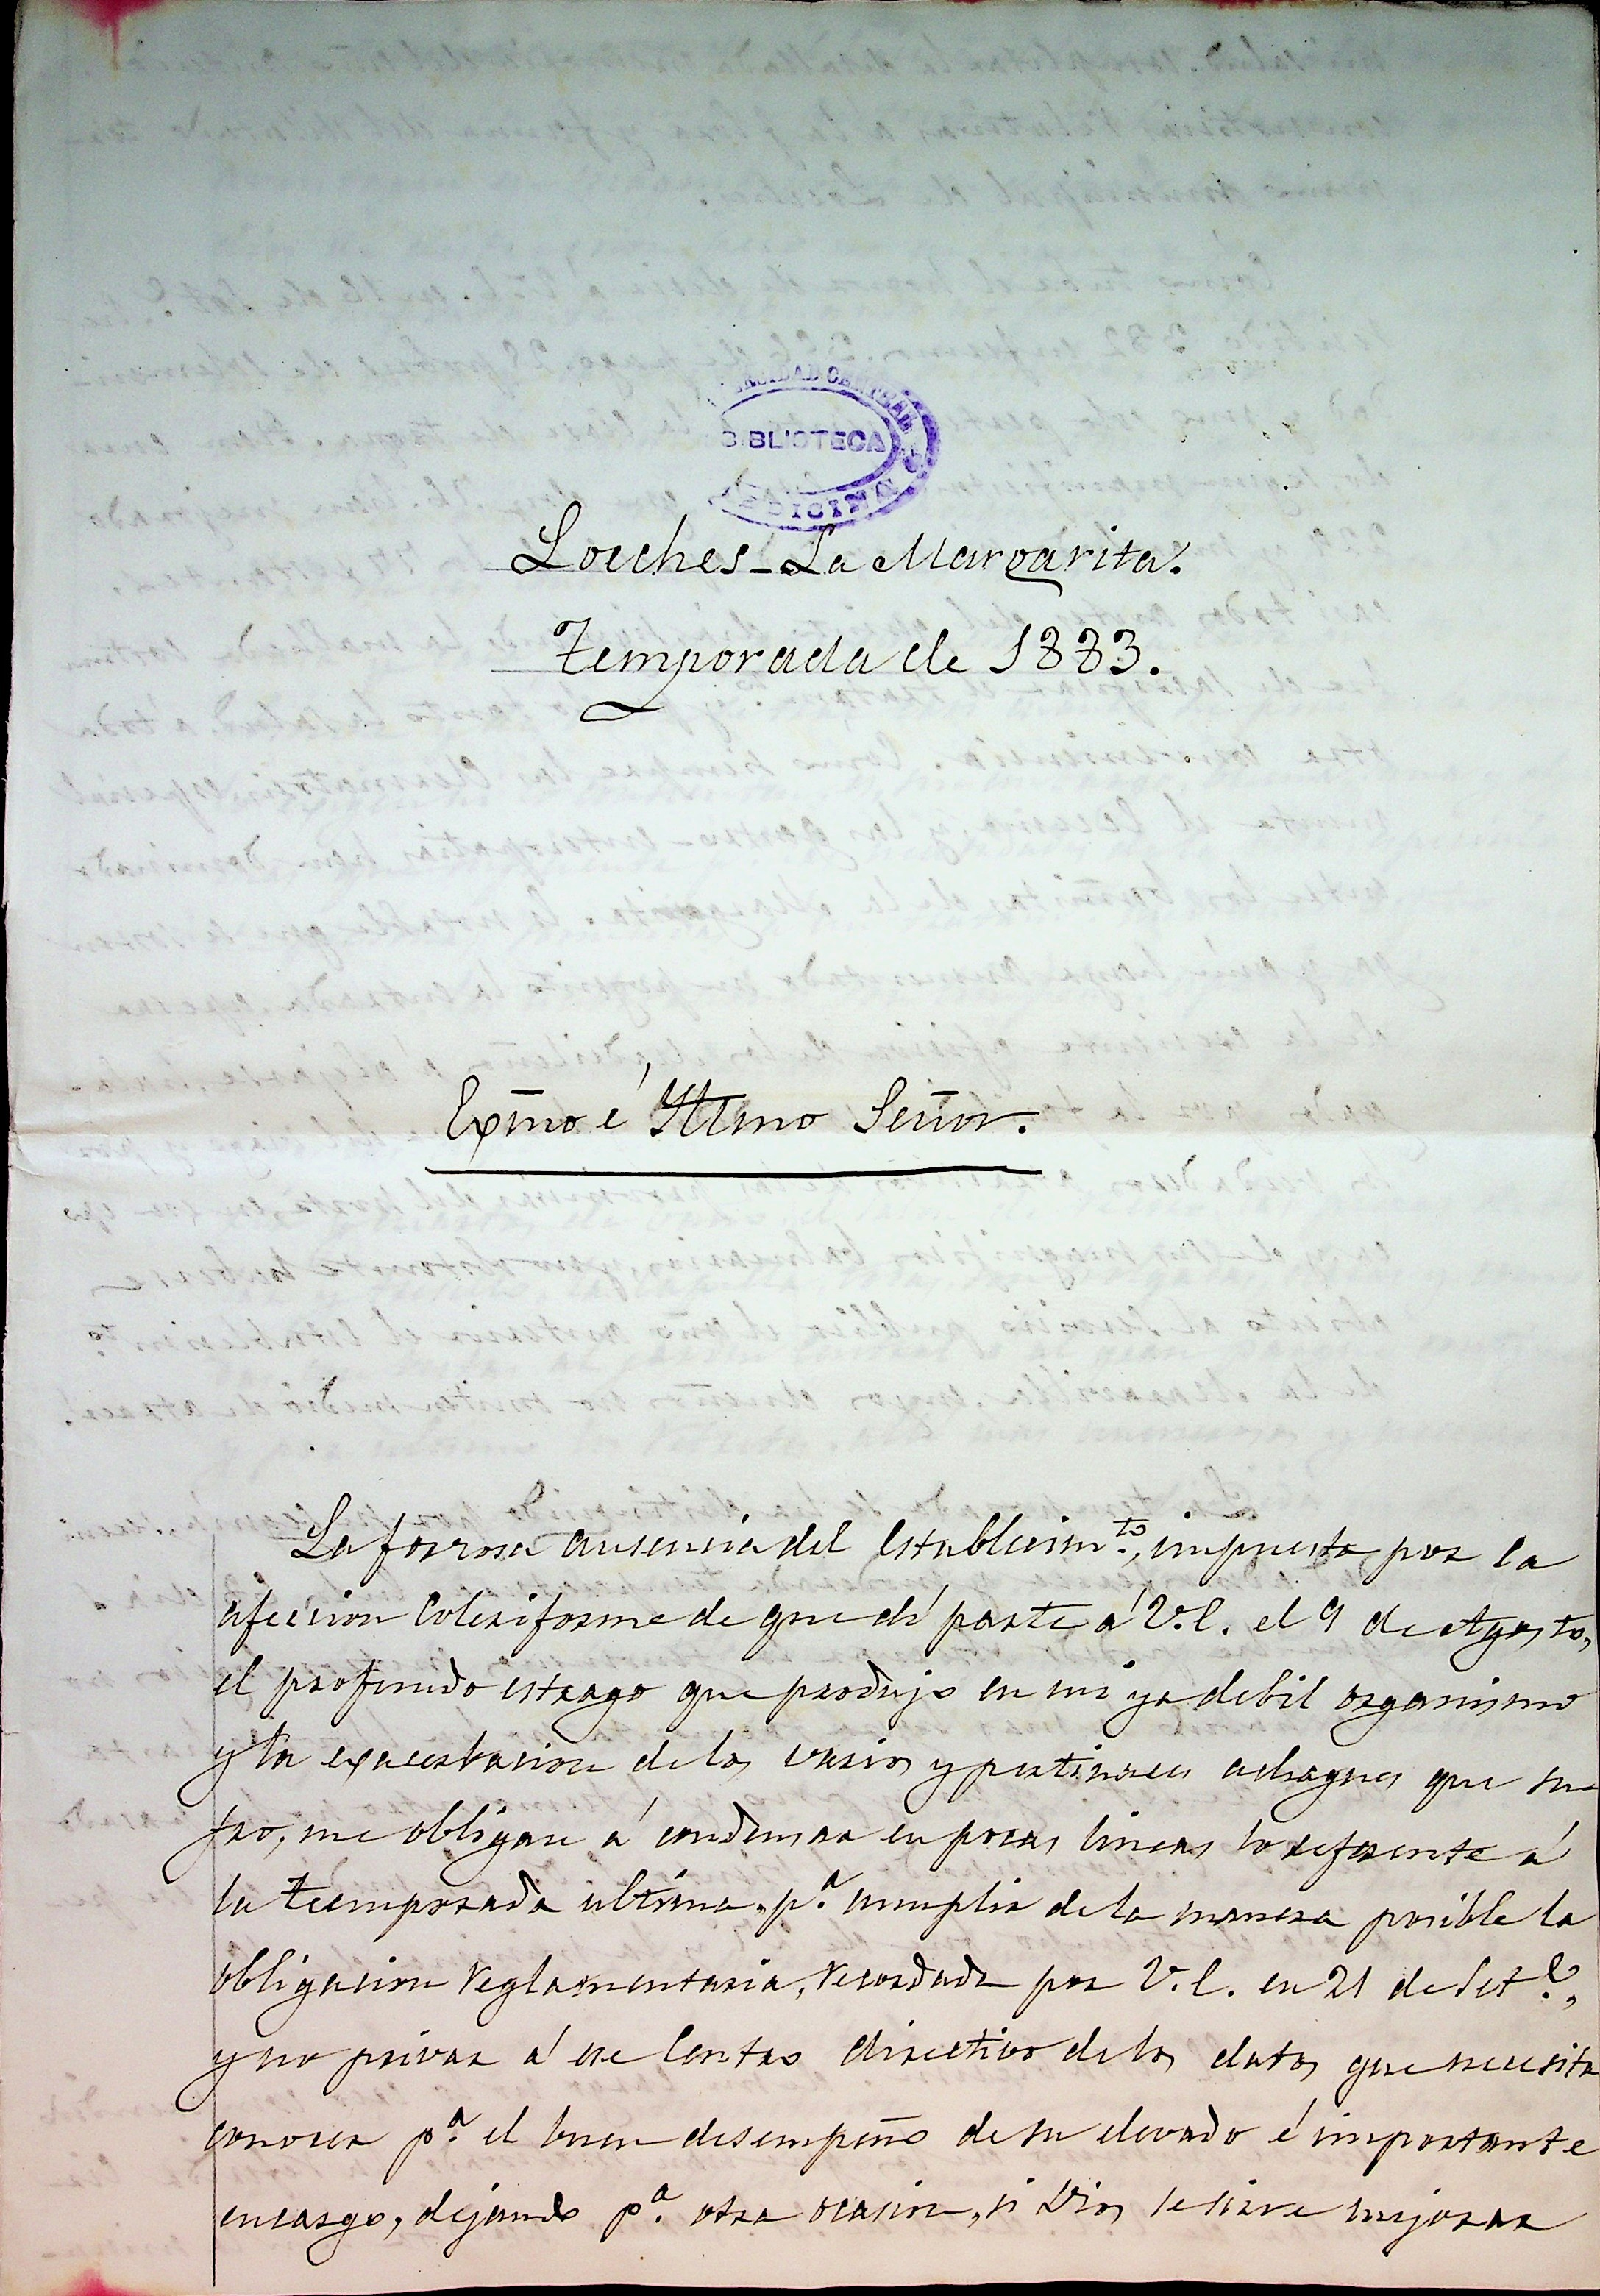 UNIVERSIDAD CENTRAL
BIBLIOTECA
MEDICINA
Loeches - La Margarita.
Temporada de 1883.
Exmo é Iltmo Señor.
La forzosa ausencia del establecim.to, impuesta por la
afeccion coleriforme de que dí parte á V.E. el 9 de Agosto,
el profundo estrago que produjo en mi ya debil organismo
y la exacerbacion de los varios y pertinaces achaques que su-
fro, me obligan á condensar en pocas lineas lo referente á
la temporada ultima, p.a cumplir de la manera posible la
obligacion reglamentaria, recordada por V.E. en 21 de Set.e,
y no privar á ese Centro directivo de los datos que necesita
conocer p.a el buen desempeño de su elevado é importante
encargo, dejando p.a otra ocasion, si Dios se sirve mejorar